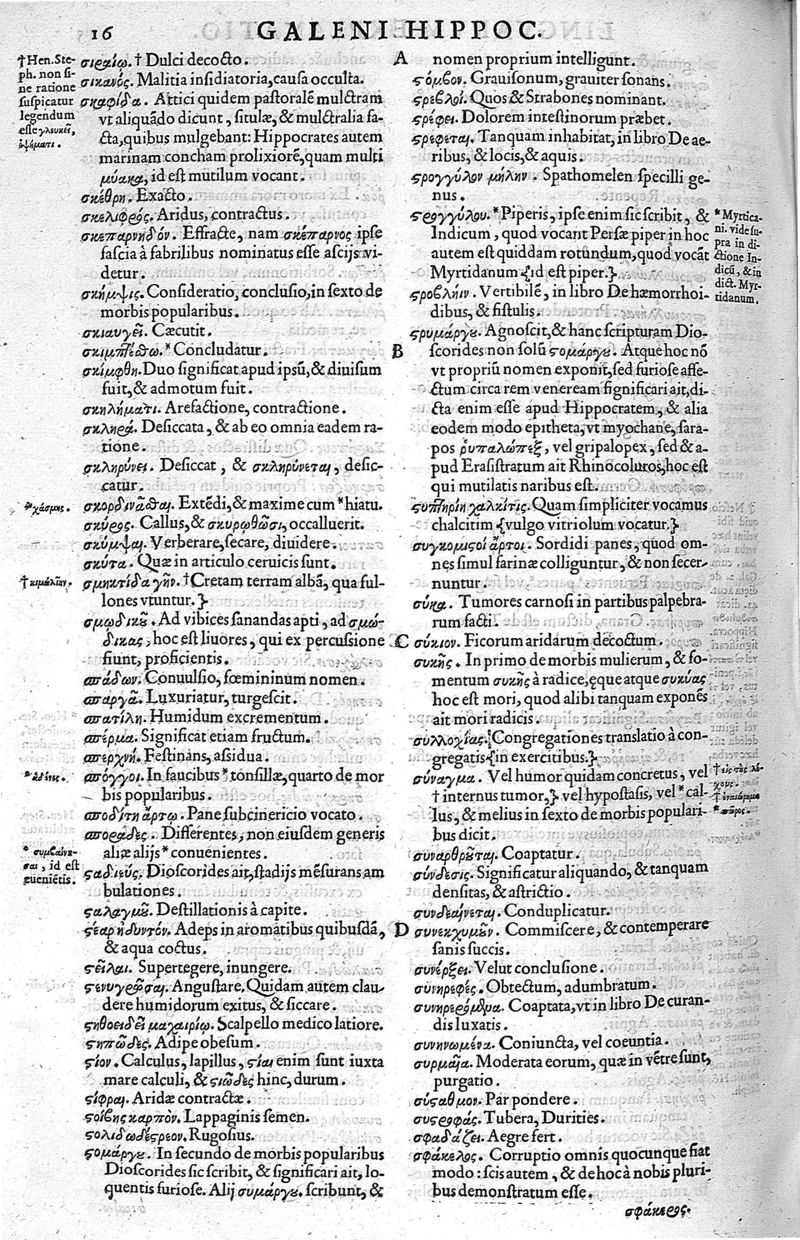 16
GALENI HIPPOC.
† Hen. Ste-
ph. non si-
ne ratione
suspicatur
legendum
esse γλευκεῖ,
ἑψήματι.
σιραίῳ. † Dulci decocto.
σικανός. Malitia insidiatoria, causa occulta.
σκαφίδα. Attici quidem pastoralē mulctram
vt aliquādo dicunt, situlæ, & mulctralia fa-
cta, quibus mulgebant: Hippocrates autem
marinam concham prolixiorē, quam multi
μύακα, id est mutilum vocant.
σκέθρη. Exacto.
σκελιφρός. Aridus, contractus.
σκεπαρνηδόν. Effracte, nam σκέπαρνος ipse
fascia à fabrilibus nominatus esse ascijs vi-
detur.
σκῆμψις. Consideratio, conclusio, in sexto de
morbis popularibus.
σκιαυγεῖ. Cæcutit.
σκιμπέσθω. * Concludatur.
σκίμφθη. Duo significat apud ipsū, & diuisum
fuit, & admotum fuit.
σκλήματι. Arefactione, contractione.
σκληρά. Desiccata, & ab eo omnia eadem ra-
tione.
σκληρύνει. Desiccat, & σκληρύνεται, desic-
catur.
* χάσμης.
σκορδινᾶσθαι. Extēdi, & maxime cum * hiatu.
σκύρος. Callus, & σκυρωθῶσι, occalluerit.
σκύμψαι. Verberare, secare, diuidere.
σκύτα. Quæ in articulo ceruicis sunt.
† κιμωλίαν.
σμηκτίδα γῆν. † Cretam terram albā, qua ful-
lones vtuntur.}
σμωδικῶν. Ad vibices sanandas apti, ad σμώ-
δικας, hoc est liuores, qui ex percussione
fiunt, proficientis.
σπάδων. Conuulsio, fœmininum nomen.
σπαργᾷ. Luxuriatur, turgescit.
σπατίλη. Humidum excrementum.
σπέρμα. Significat etiam fructum.
σπερχνή. Festinans, assidua.
σπόγγοι. In faucibus * tonsillæ, quarto de mor
bis popularibus.
σποδίτη ἄρτῳ. Pane subcinericio vocato.
σποράδες. Differentes, non eiusdem generis
aliæ alijs * conuenientes.
* συμβαίνε-
σαι, id est
eueniētis.
ςαδιεύς. Dioscorides ait, stadijs mēsurans am
bulationes.
ςαλαγμῶν. Destillationis à capite.
ςέαρ ἡδυντόν. Adeps in aromatibus quibusdā,
& aqua coctus.
ςεῖλαι. Supertegere, inungere.
ςενυγρῶσαι. Angustare, Quidam autem clau-
dere humidorum exitus, & siccare.
ςηθοειδεῖ μαχαιρίῳ. Scalpello medico latiore.
ςηπῶδες. Adipe obesum.
ςίον. Calculus, lapillus, ςίαι enim sunt iuxta
mare calculi, & ςιῶδες hinc, durum.
ςιφραί. Aridæ contractæ.
ςοιβῆς καρπόν. Lappaginis semen.
ςολιδωδέςερον. Rugosius.
ςομάργου. In secundo de morbis popularibus
Dioscorides sic scribit, & significari ait, lo-
quentis furiose. Alij συμάργου. scribunt, &
A nomen proprium intelligunt.
ςόμβον. Grauisonum, grauiter sonans.
ςρεβλοί. Quos & Strabones nominant.
ςρέφει. Dolorem intestinorum præbet.
ςρέφεται. Tanquam inhabitat, in libro De ae-
ribus, & locis, & aquis.
ςρογγύλον μήλην. Spathomelen specilli ge-
nus.
ςρογγύλου. * Piperis, ipse enim sic scribit, &
Indicum, quod vocant Persæ piper in hoc
autem est quiddam rotundum, quod vocāt
Myrtidanum {id est piper.}
* Myrtica-
ni. vide su-
pra in di-
ctione In-
dicū, & in
dict. Myr-
tidanum.
ςροβλήιν. Vertibilē, in libro De hæmorrhoi-
dibus, & fistulis.
ςρυμάργου. Agnoscit, & hanc scripturam Dio-
B scorides non solū ςομάργου. Atque hoc nō
vt propriū nomen exponit, sed furiose affe-
ctum circa rem veneream significari ait, di-
cta enim esse apud Hippocratem, & alia
eodem modo epitheta, vt myochane, sara-
pos ῥυπαλώπηξ, vel gripalopex, sed & a-
pud Erasistratum ait Rhinocoluros, hoc est
qui mutilatis naribus est.
ςυπτηρίη χαλκῖτις. Quam simpliciter vocamus
chalcitim {vulgo vitriolum vocatur.}
συγκομιςοὶ ἄρτοι. Sordidi panes, quod om-
nes simul farinæ colliguntur, & non secer-
nuntur.
σύκα. Tumores carnosi in partibus palpebra-
rum facti.
C σύκιον. Ficorum aridarum decoctum.
συκῆς. In primo de morbis mulierum, & fo-
mentum συκῆς à radice, ęque atque συκύας
hoc est mori, quod alibi tanquam exponēs
ait mori radicis.
συλλοχίας. {Congregationes translatio à con-
gregatis {in exercitibus.}
σύναγμα. Vel humor quidam concretus, vel
† internus tumor,} vel hypostasis, vel * cal-
lus, & melius in sexto de morbis populari-
bus dicit.
* πῶρος.
συναρθροῦται. Coaptatur.
σύνδεσις. Significatur aliquando, & tanquam
densitas, & astrictio.
συνδεαίνεται. Conduplicatur.
D συνεκχυμῶν. Commiscere, & contemperare
sanis succis.
συνέρξει. Velut conclusione.
συνηρεφές. Obtectum, adumbratum.
συνηρεόμενα. Coaptata, vt in libro De curan-
dis luxatis.
συνηνωμένα. Coniuncta, vel coeuntia.
συρμαΐα. Moderata eorum, quæ in vētre sunt,
purgatio.
σύςαθμον. Par pondere.
συςροφάς. Tubera, Durities.
σφαδάζει. Aegre fert.
σφάκελος. Corruptio omnis quocunque fiat
modo: scis autem, & de hoc à nobis pluri-
bus demonstratum esse.
σφάκερος.